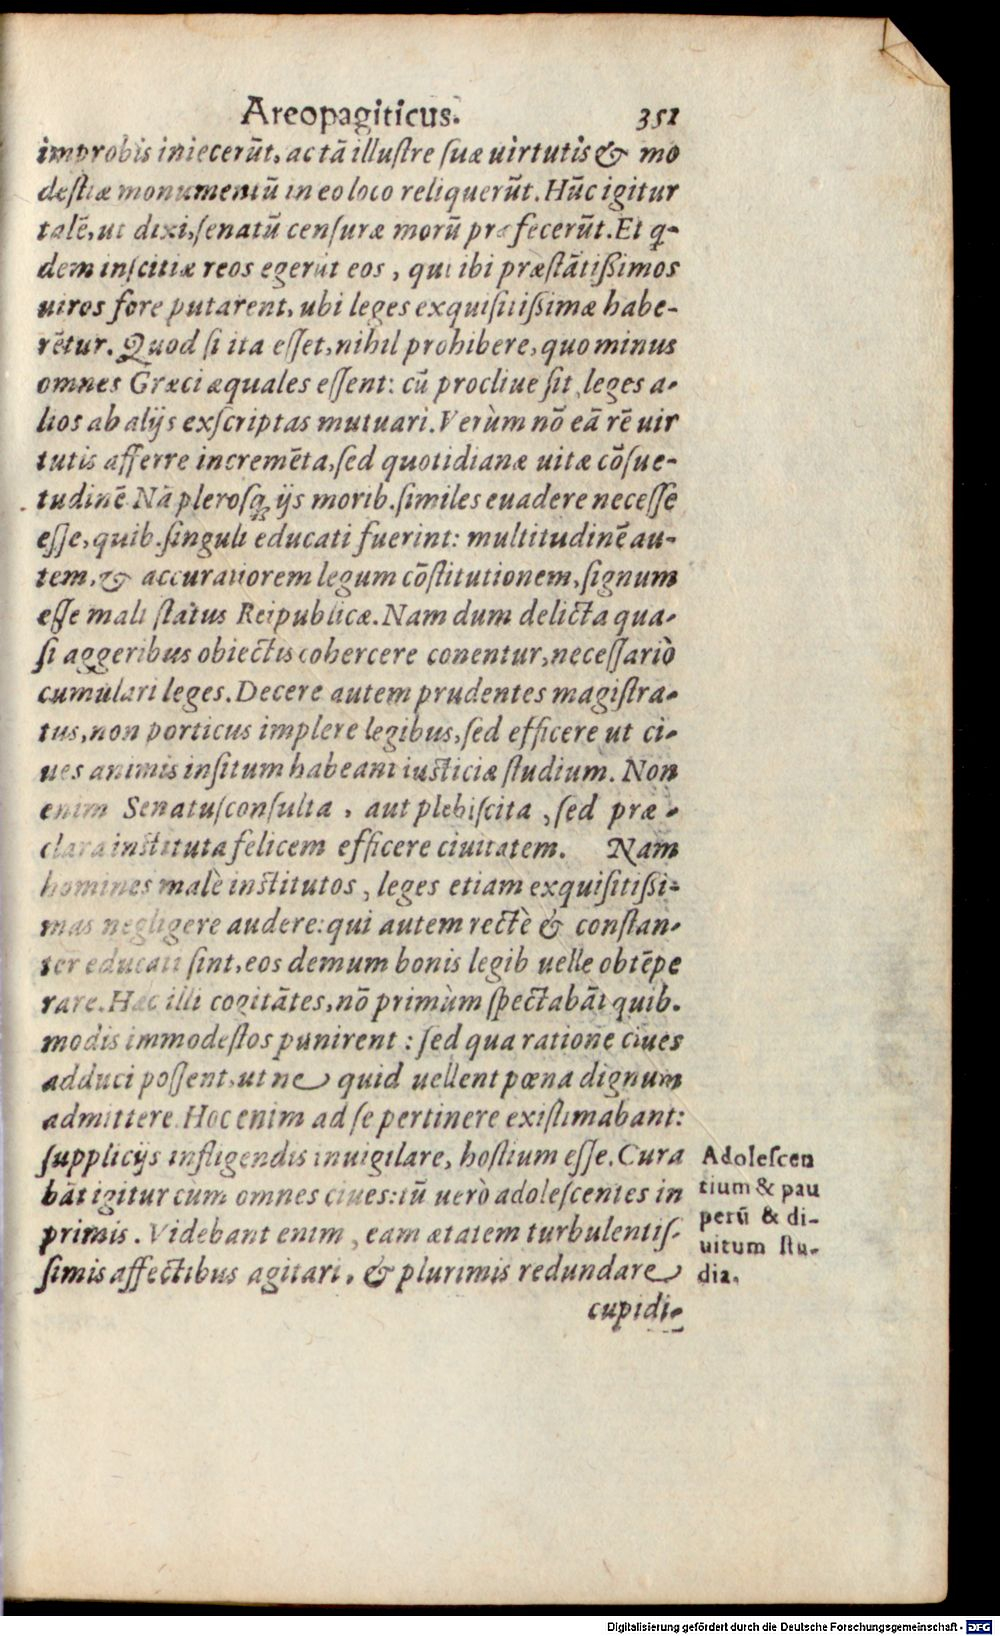 Areopagiticus. 351
improbis iniecerūt, ac tā illustre suæ uirtutis & mo
destiæ monumentū in eo loco reliquerūt. Hūc igitur
talē, ut dixi, senatū censuræ morū præfecerūt. Et q-
dem inscitiæ reos egerūt eos, qui ibi præstātißimos
uiros fore putarent, ubi leges exquisitißimæ habe-
rētur. Quod si ita esset, nihil prohibere, quo minus
omnes Græci æquales essent: cū procliue sit, leges a-
lios ab alijs exscriptas mutuari. Verùm nō eā rē uir
tutis afferre incremēta, sed quotidianæ uitæ cōsue-
tudinē. Nā plerosq; ijs morib. similes euadere necesse
esse, quib. singuli educati fuerint: multitudinē au-
tem, & accuratiorem legum cōstitutionem, signum
esse mali status Reipublicæ. Nam dum delicta qua-
si aggeribus obiectis cohercere conentur, necessariò
cumulari leges. Decere autem prudentes magistra-
tus, non porticus implere legibus, sed efficere ut ci-
ues animis insitum habeant iusticiæ studium. Non
enim Senatusconsulta, aut plebiscita, sed præ-
clara instituta felicem efficere ciuitatem. Nam
homines malè institutos, leges etiam exquisitißi-
mas negligere audere: qui autem rectè & constan-
ter educati sint, eos demum bonis legib uelle obtēpe
rare. Hæc illi cogitātes, nō primùm spectabāt quib.
modis immodestos punirent: sed qua ratione ciues
adduci possent, ut ne quid uellent pœna dignum
admittere. Hoc enim ad se pertinere existimabant:
supplicijs infligendis inuigilare, hostium esse. Cura
bāt igitur cùm omnes ciues: tū uerò adolescentes in
primis. Videbant enim, eam ætatem turbulentis-
simis affectibus agitari, & plurimis redundare
cupidi-
Adolescen
tium & pau
perū & di-
uitum stu-
dia.
Digitalisierung gefördert durch die Deutsche Forschungsgemeinschaft - DFG